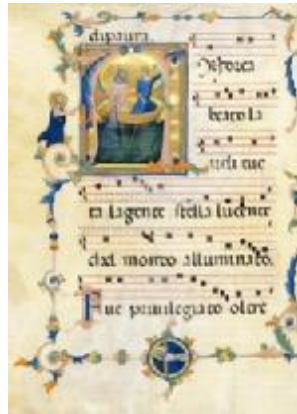 di paura
beato la
ta la gente stella lucente
dal mondo alluminato.
Fue privilegiato oltre